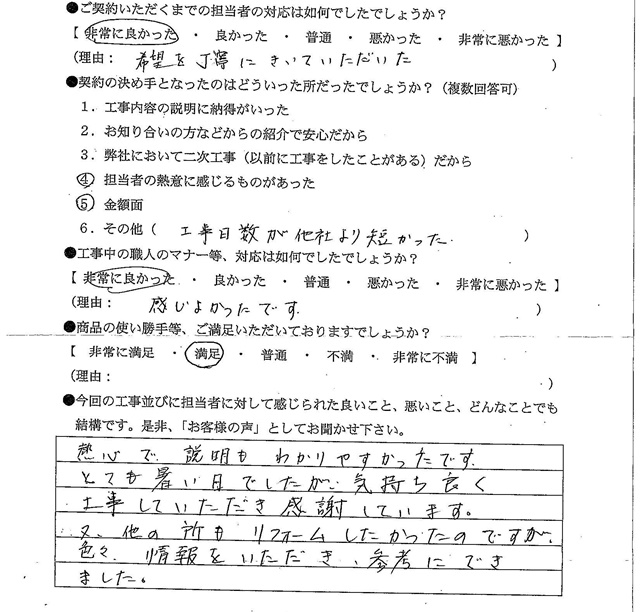 ●ご契約いただくまでの担当者の対応は如何でしたでしょうか？
【 非常に良かった ・ 良かった ・ 普通 ・ 悪かった ・ 非常に悪かった 】
(理由： 希望を丁寧にきいていただいた )
●契約の決め手となったのはどういった所だったでしょうか？（複数回答可）
1．工事内容の説明に納得がいった
2．お知り合いの方などからの紹介で安心だから
3．弊社において二次工事（以前に工事をしたことがある）だから
④ 担当者の熱意に感じるものがあった
⑤ 金額面
6．その他（ 工事日数が他社より短かった. ）
●工事中の職人のマナー等、対応は如何でしたでしょうか？
【 非常に良かった ・ 良かった ・ 普通 ・ 悪かった ・ 非常に悪かった 】
(理由： 感じよかったです. )
●商品の使い勝手等、ご満足いただいておりますでしょうか？
【 非常に満足 ・ 満足 ・ 普通 ・ 不満 ・ 非常に不満 】
(理由： )
●今回の工事並びに担当者に対して感じられた良いこと、悪いこと、どんなことでも
結構です。是非、「お客様の声」としてお聞かせ下さい。
熱心で 説明も わかりやすかったです.
とても暑い日でしたが、気持ち良く
工事していただき感謝しています。
又、他の所もリフォームしたかったのですが、
色々、情報をいただき、参考にでき
ました。